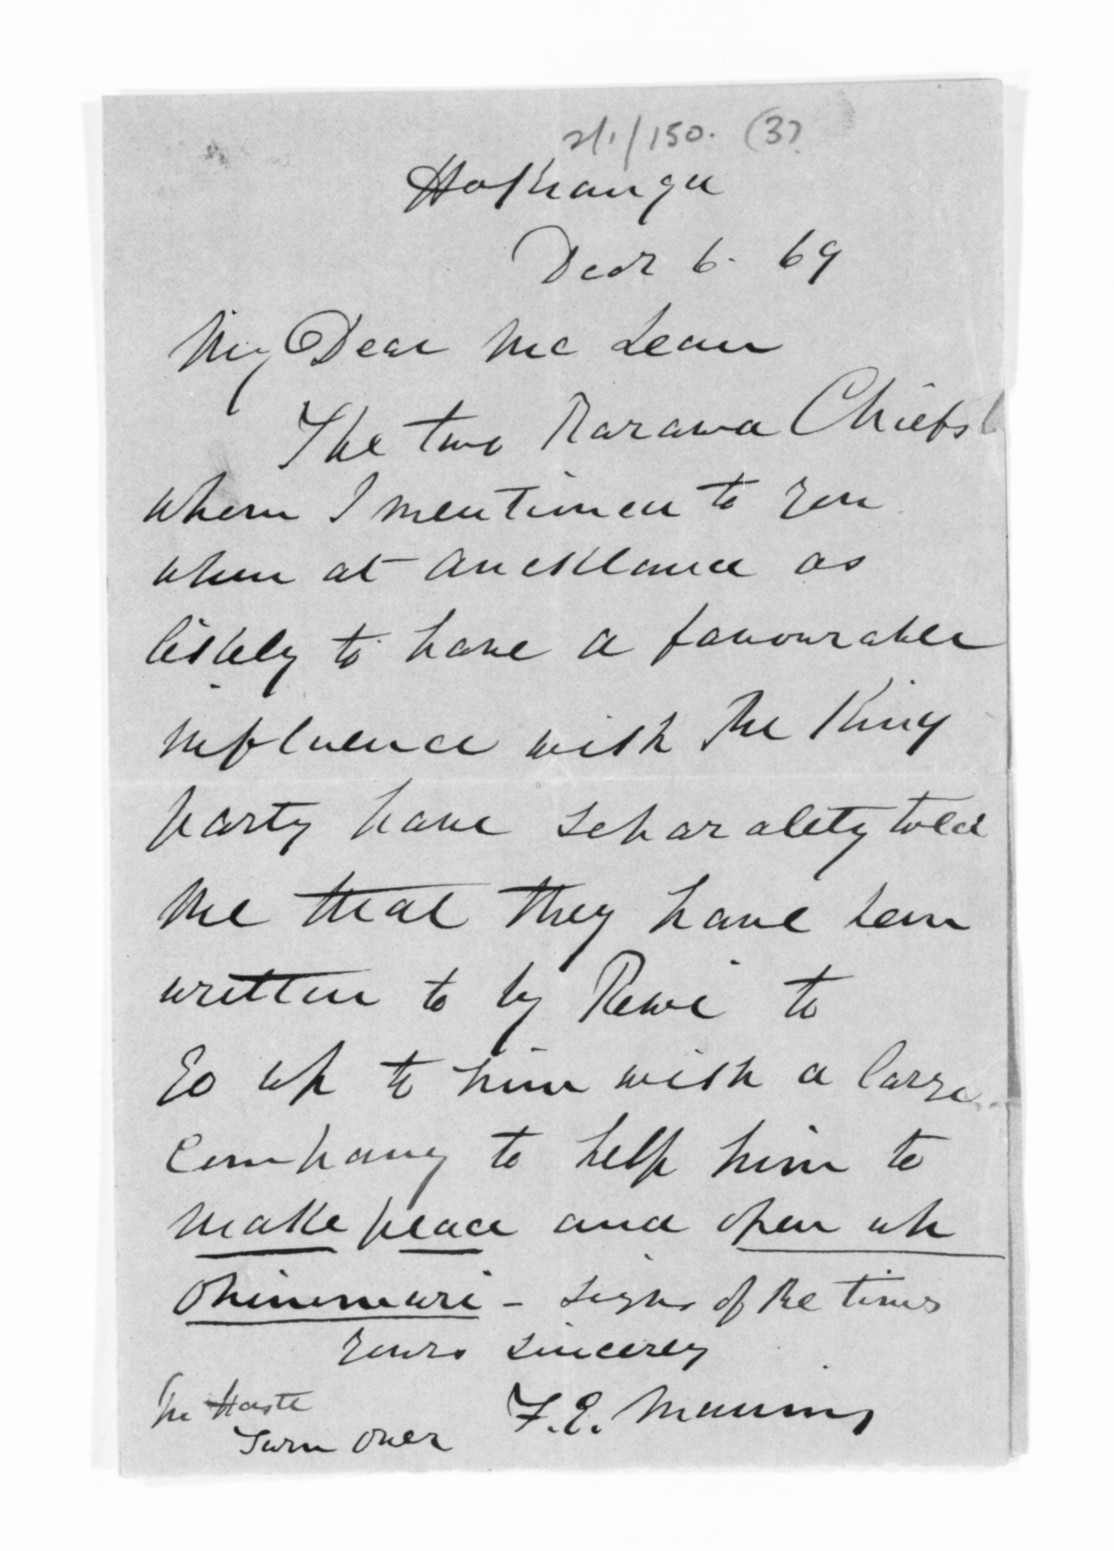 2/1/150. (3)
Hokianga
Decr 6. 69
My Dear Mc Lean
The two Rarawa Chiefs
whom I mentioned to you
when at Auckland as
likely to have a favourable
influence with the King
party have separately told
me that they have been
written to by Rewi to
go up to him with a large
Company to help him to
make peace and open up
Ohinemuri - signs of the times
Yours sincerely
F. E. Maning
In Haste
Turn over